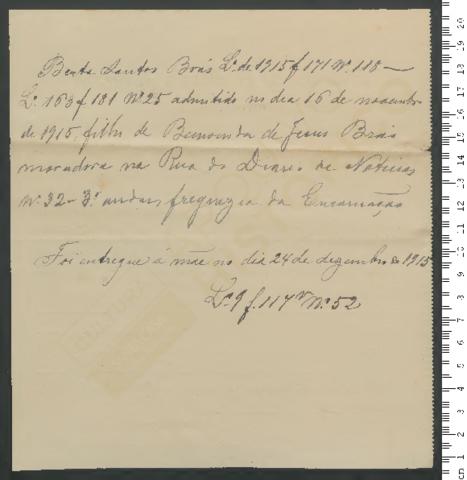 Bento Santos Brás Lº de 1915 f 171 Nº 118 —
Lº 163 f 181 Nº 25 admitido no dia 16 de novembro
de 1915 filho de de Jesus Brás
moradora na Rua do Diario de Noticias
nº 32 - 3º andar, freguezia da Encarnação
Foi entregue á mãe no dia 24 de dezembro de 1915
Lº 9 f. 114v Nº 52